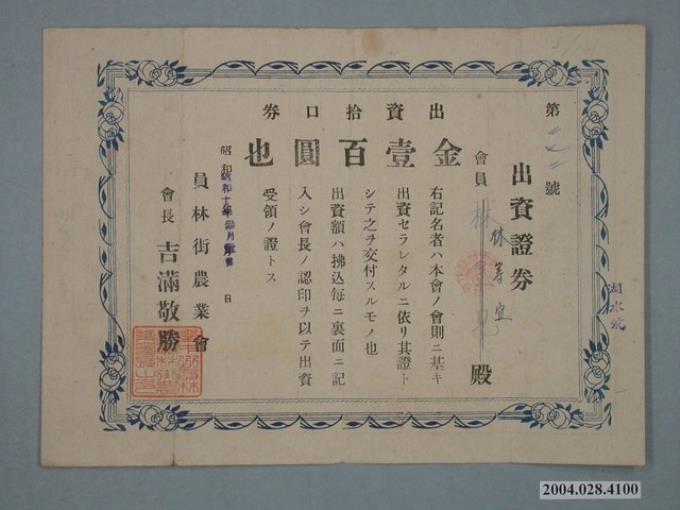 第 號
出資證券
會員 林 殿
出資拾口券
金壹百圓也
右記名者ハ本會ノ會則ニ基キ
出資セラレタルニ依リ其證ト
シテ之ヲ交付スルモノ也
出資額ハ拂込每ニ裏面ニ記
入シ會長ノ認印ヲ以テ出資
受領ノ證トス
昭和 日
員林街農業會
會長 吉滿敬勝
2004.028.4100